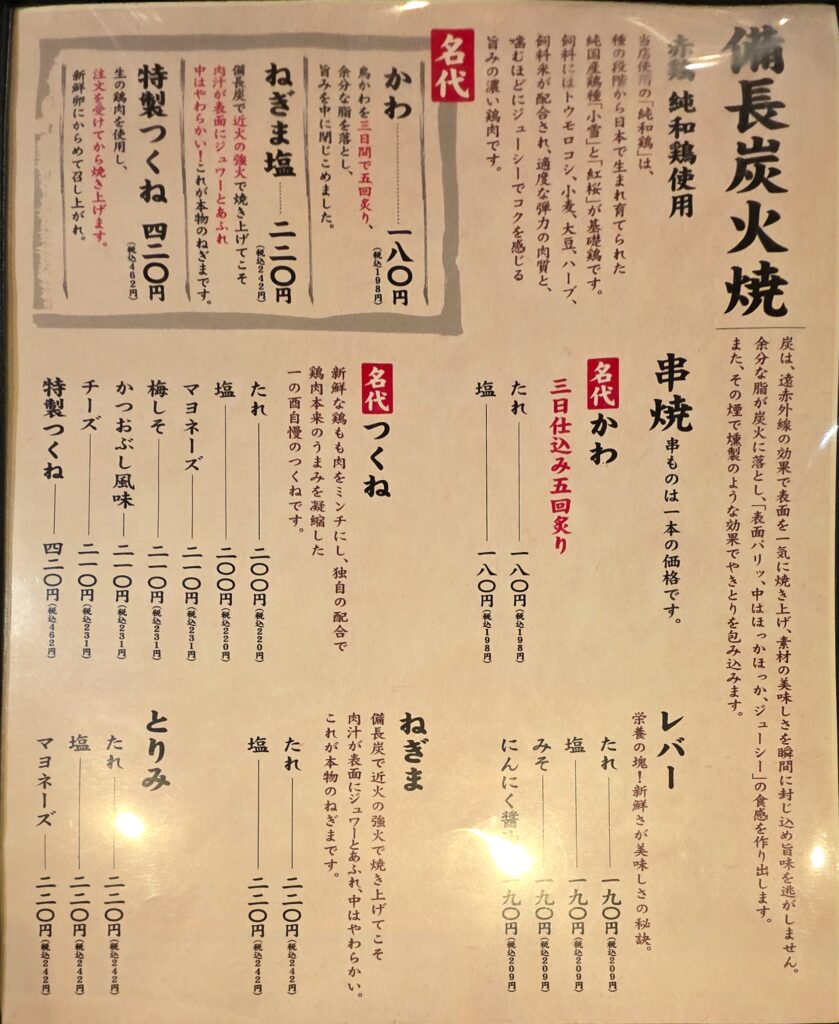 備長炭火焼
炭は、遠赤外線の効果で表面を一気に焼き上げ、素材の美味しさを瞬間に封じ込め旨味を逃がしません。
余分な脂が炭火に落とし、「表面パリッ、中はほっかほっか、ジューシー」の食感を作り出します。
また、その煙で燻製のような効果でやきとりを包み込みます。
赤鶏 純和鶏使用
当店使用の「純和鶏」は、
種の段階から日本で生まれ育てられた
純国産鶏種「小雪」と「紅桜」が基礎鶏です。
飼料にはトウモロコシ、小麦、大豆、ハーブ、
飼料米が配合され、適度な弾力の肉質と、
噛むほどにジューシーでコクを感じる
旨みの濃い鶏肉です。
名代
かわ 一八〇円
(税込198円)
鳥かわを三日間で五回炙り、
余分な脂を落とし、
旨みを中に閉じこめました。
ねぎま塩 二二〇円
(税込242円)
備長炭で近火の強火で焼き上げてこそ
肉汁が表面にジュワーとあふれ
中はやわらかい!これが本物のねぎまです。
特製つくね 四二〇円
(税込462円)
生の鶏肉を使用し、
注文を受けてから焼き上げます。
新鮮卵にからめて召し上がれ。
串焼 串ものは一本の価格です。
名代 かわ
三日仕込み五回炙り
たれ 一八〇円(税込198円)
塩 一八〇円(税込198円)
名代 つくね
新鮮な鶏もも肉をミンチにし、独自の配合で
鶏肉本来のうまみを凝縮した
一の酉自慢のつくねです。
たれ 二〇〇円(税込220円)
塩 二〇〇円(税込220円)
マヨネーズ 二一〇円(税込231円)
梅しそ 二一〇円(税込231円)
かつおぶし風味 二一〇円(税込231円)
チーズ 二一〇円(税込231円)
特製つくね 四二〇円(税込462円)
レバー
栄養の塊!新鮮さが美味しさの秘訣。
たれ 一九〇円(税込209円)
塩 一九〇円(税込209円)
みそ 一九〇円(税込209円)
にんにく醤油 一九〇円(税込209円)
ねぎま
備長炭で近火の強火で焼き上げてこそ
肉汁が表面にジュワーとあふれ、中はやわらかい。
これが本物のねぎまです。
たれ 二二〇円(税込242円)
塩 二二〇円(税込242円)
とりみ
たれ 二二〇円(税込242円)
塩 二二〇円(税込242円)
マヨネーズ 二二〇円(税込242円)